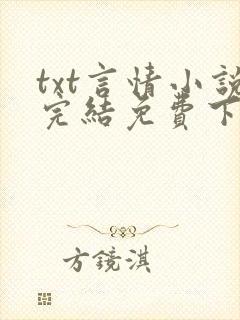 txt言情小說
完結免費下
方鏡淇